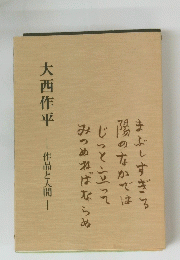 まぶしすぎる
陽のなかでは
じっと立って
みつめねばならぬ
大西作平
作品と人間